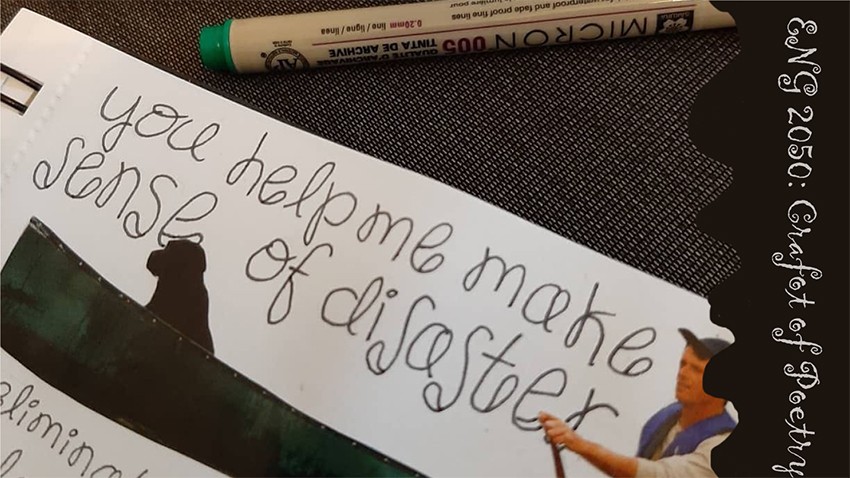 you help me make
sense of disaster
MICRON 005
0.20mm line / ligne / línea
QUALITÉ D'ARCHIVAGE
TINTA DE ARCHIVE
waterproof and fade proof fine lines
lumière pour
AP
ENG 2050: Craft of Poetry